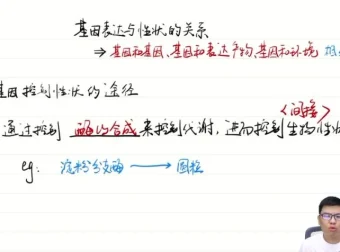 基因表达与性状的关系
⇒ 基因和基因、基因和表达产物、基因和环境
基因控制性状的途径
<间接>
通过控制 酶的合成 来控制代谢，进而控制生物性状
eg: 淀粉分支酶 → 圆粒